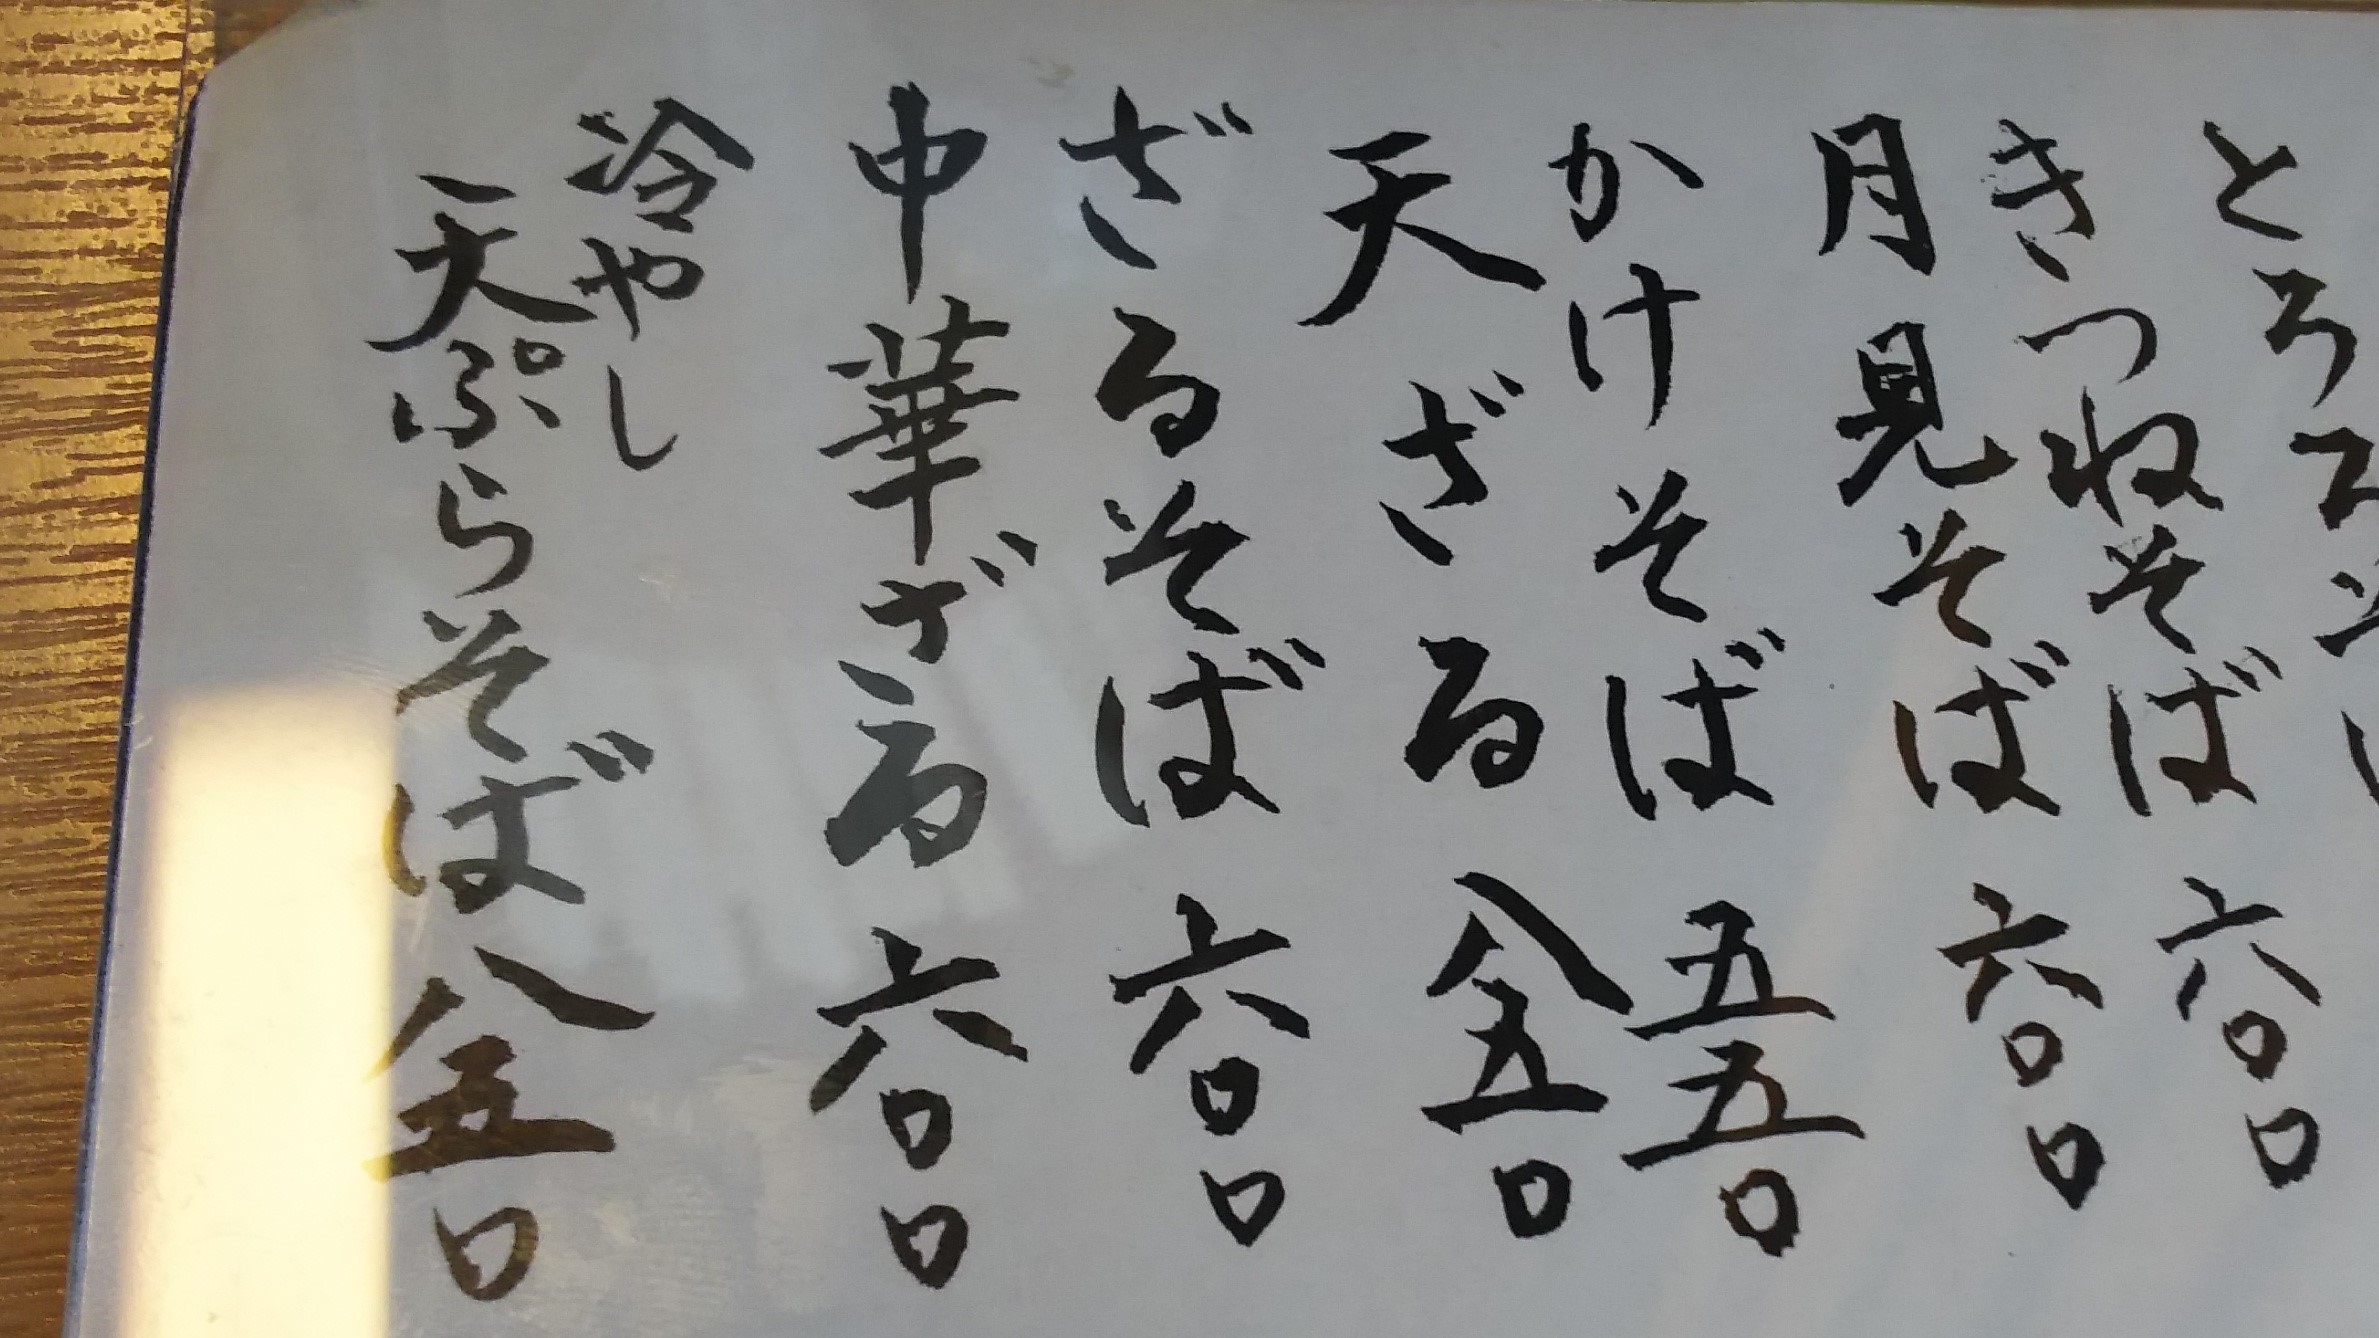 とろろそば
きつねそば 六〇〇
月見そば 六〇〇
かけそば 五五〇
天ざる 八五〇
ざるそば 六〇〇
中華ざる 六〇〇
冷やし
天ぷらそば 八五〇